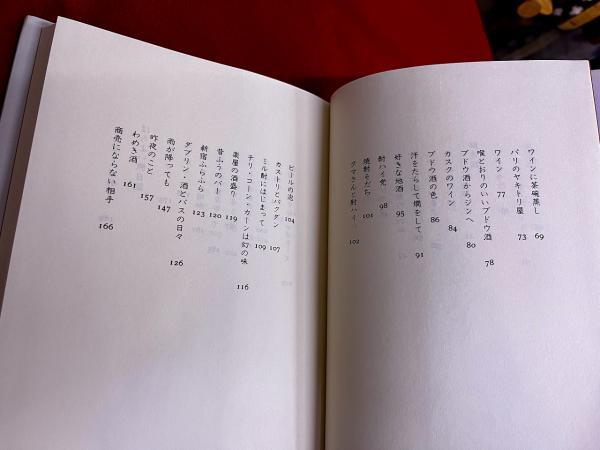 ワインに茶碗蒸し 69
パリのヤキトリ屋 73
ワイン 77
喉とおりのいいブドウ酒 78
ブドウ酒からジンへ 80
カスクのワイン 84
ブドウ酒の色 86
汗をたらして燗をして 91
好きな地酒 95
酎ハイ党 98
焼酎そだち 101
クマさんと酎ハイ 102
ビールの泡 104
カストリとバクダン 107
ミル酎にはじまって 109
チリ・コーン・カーンは幻の味 116
楽屋の酒盛り 119
昔ふうのバー 120
新宿ふらふら 123
ダブリン・酒とバスの日々 126
雨が降っても 147
昨夜のこと 157
わめき酒 161
商売にならない相手 166